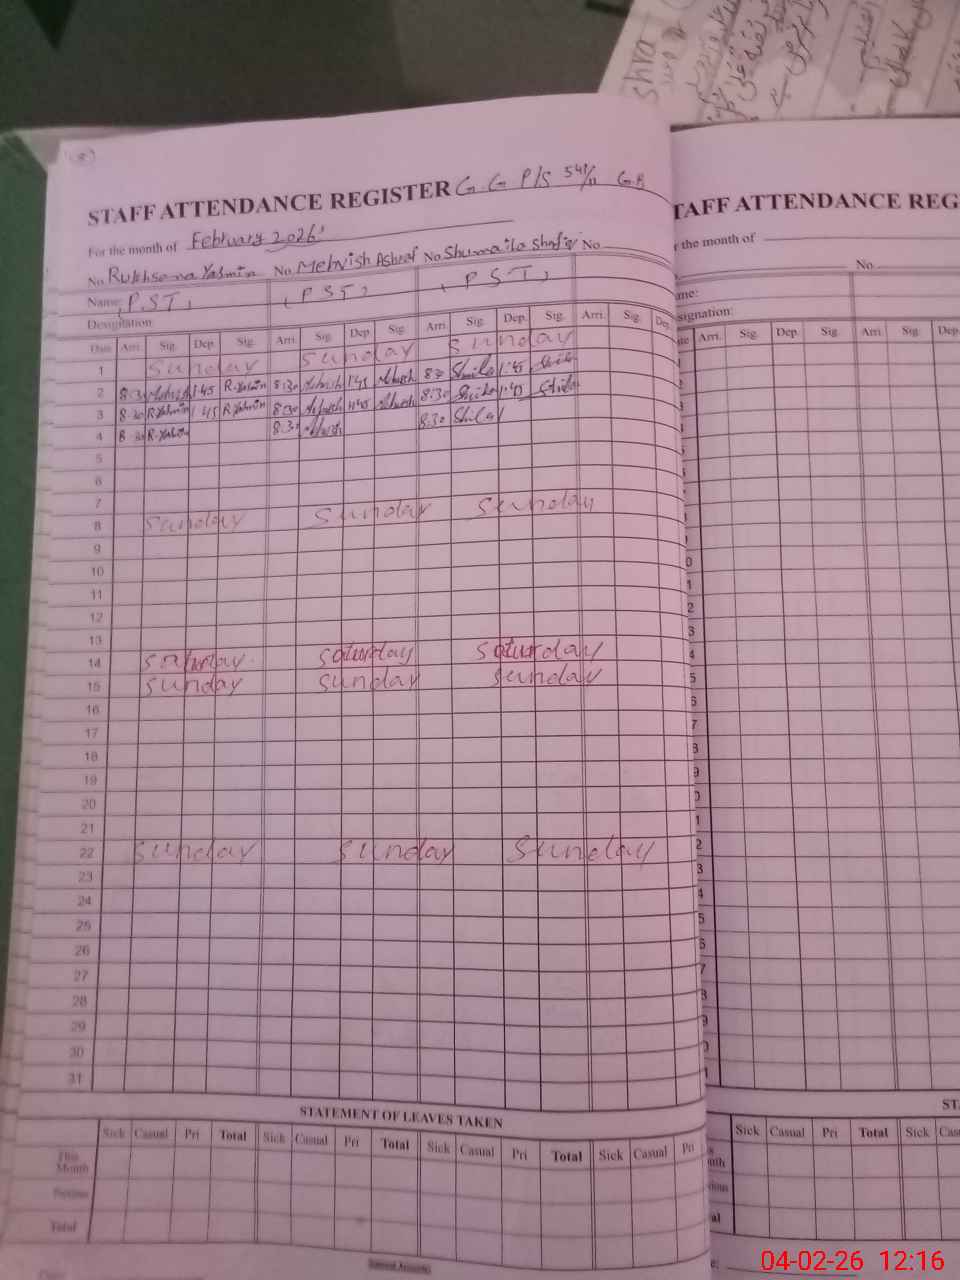 STAFF ATTENDANCE REGISTER G.G P/S
For the month of February 2026
No. Rukhsana Yasmin No. Mehvish Ashraf No. Shumaila Shafiq No.
Name: P.S.T, (PST, (PST,
Designation:
Date Arri. Sig. Dep. Sig. Arri. Sig. Dep. Sig. Arri. Sig. Dep. Sig. Arri. Sig. Dep.
1 Sunday Sunday Sunday
2 8:30 1:45 R.Yasmin 8:30 Mehvish 1:45 Mehvish 8:30 1:45
3 8:30 R.Yasmin 1:45 R.Yasmin 8:30 Mehvish 1:45 Mehvish 8:30 1:45
4 8:30 R.Yasmin 8:30 Mehvish 8:30
5
6
7
8 Sunday Sunday Sunday
9
10
11
12
13
14 Saturday Saturday Saturday
15 Sunday Sunday Sunday
16
17
18
19
20
21
22 Sunday Sunday Sunday
23
24
25
26
27
28
29
30
31
STATEMENT OF LEAVES TAKEN
Sick Casual Pri Total Sick Casual Pri Total Sick Casual Pri Total Sick Casual Pri
This Month
Previous
Total
TAFF ATTENDANCE REG
the month of
No.
ame:
signation:
Arri. Sig. Dep. Sig. Arri. Sig. Dep
ST
Sick Casual Pri Total Sick Cas
04-02-26 12:16